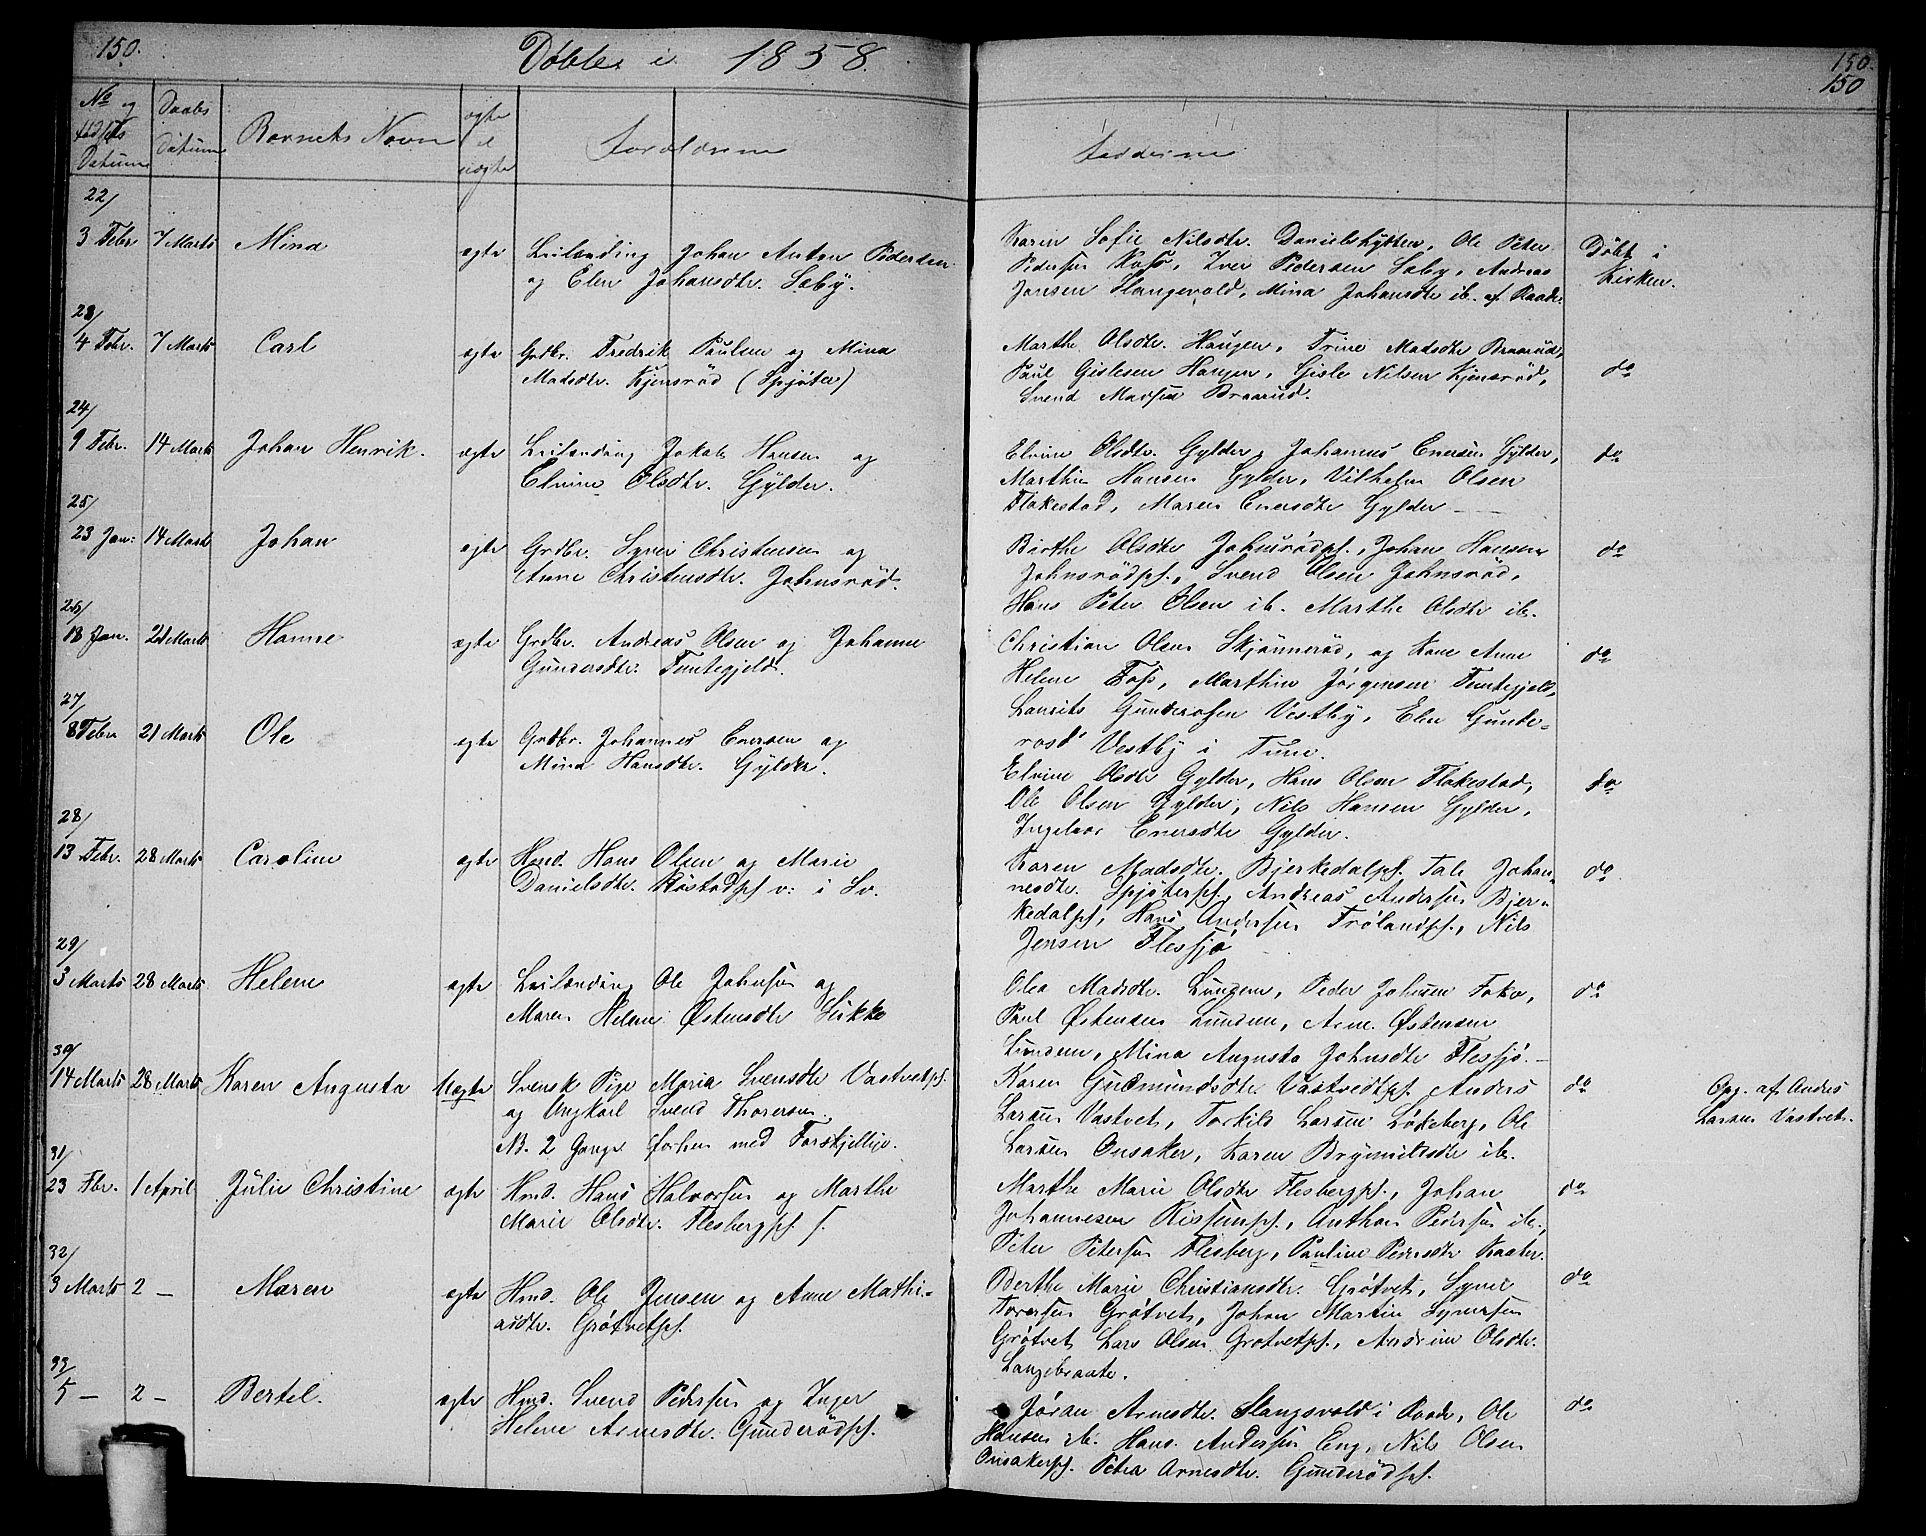 150.
Döbte i 1858.
150.
150
No og fødsels Datum
Daabs Datum
Barnets Navn
ægte el uægte
Forældrene
Fadderne
22/
3 Febr 7 Marts Mina ægte Leilænding Johan Anton Pedersen
og Elen Johansdtr. Sæby.
Karen Sofie Nilsdtr. Danielshytten, Ole Peter
Pedersen Koss, Iver Pedersen Sæby, Andreas
Jansen Slangsvold, Mina Johansdtr ib. af Raade.
Döbt i
Kirken.
23/
4 Febr. 7 Marts Carl ægte Grdbr. Fredrik Paulsen og Mina
Madsdtr. Kjensröd (Spjöter)
Marthe Olsdtr. Haugen, Trine Madsdtr Braarud,
Paul Gislesen Haugen, Gisle Nilsen Kjensröd,
Svend Madsen Braarud.
do
24/
9 Febr. 14 Marts Johan Henrik. ægte Leilænding Jakob Hansen og
Elvine Olsdtr. Gylder.
Elvine Olsdtr. Gylder, Johannes Enersen Gylder,
Marthin Hansen Gylder, Vilhelm Olsen
Flakestad, Maren Enersdtr Gylder
do
25/
23 Jan: 14 Marts Johan ægte Grdbr. Syver Christensen og
Anne Christensdtr. Johnsröd.
Birthe Olsdtr Johnsrödpl., Johan Hansen
Johnsrödpl., Svend Olsen Johnsröd,
Hans Peter Olsen ib. Marthe Olsdtr ib.
do
26/
18 Jan. 21 Marts Hanne ægte Grdbr. Andreas Olsen og Johanne
Gundersdtr. Tuntegjeld.
Christian Olsen Skjönneröd, og Kone Anne
Helene Foss, Marthin Jörgensen Tuntegjeld,
Laurits Gundersen Vestby, Elen Gunde-
rasd Vestby i Tune.
do
27/
8 Febr 21 Marts Ole ægte Grdbr. Johannes Enersen og
Mina Hansdtr. Gylder.
Elvine Olsdtr Gylder, Hans Olsen Flakestad,
Ole Olsen Gylder, Nils Hansen Gylder,
Ingebor Enersdtr Gylder.
do
28/
13 Febr. 28 Marts Caroline ægte Hmd. Hans Olsen og Marie
Danielsdtr. Röstadpl v: i Sv.
Karen Madsdtr. Bjerkedalpl. Tale Johan-
nesdtr. Spjöterpl, Andreas Andersen Bjer-
kedalpl, Hans Andersen Frölandpl., Nils
Jensen Flessjö
do
29/
3 Marts 28 Marts Helene ægte Leilænding Ole Johnsen og
Maren Helene Östensdtr Slikke
Olea Madsdtr. Lunden, Peder Johnsen Foko,
Paul Östensen Lunden, Arne Östensen
Lunden, Mina Augusta Johnsdtr Flessjö.
do
30/
14 Marts 28 Marts Karen Augusta Uægte Svensk Pige Maria Svensdtr Vastvetpl.
og Ungkarl Svend Thoresen.
NB. 2 Gange forhen med Forskjellige.
Karen Gudmundsdtr Vastvedtpl. Anders
Larsen Vastvet, Torkild Larsen Lökeberg, Ole
Larsen Onsaker, Karen Brynnildsdtr ib.
do
Opg. af Anders
Larsen Vastvet.
31/
23 Fbr. 1 April Julie Christine ægte Hmd. Hans Halvorsen og Marthe
Marie Olsdtr. Flesbergpl.
Marthe Marie Olsdtr Flesbergpl., Johan
Johannesen Rissumpl., Anthon Pedersen ib.,
Peter Petersen Flesberg, Pauline Pedersdtr Kaater.
do
32/
3 Marts 2 — Maren ægte Hmd. Ole Jensen og Anne Mathi-
asdtr. Grötvetpl.
Berthe Marie Christiansdtr. Grötvet, Syver
Toresen Grötvet, Johan Martin Syversen
Grötvet Lars Olsen Grotvetpl., Andrine Olsdtr.
Langebraate.
do
33/
5 — 2 — Bertel. ægte Hmd. Svend Pedersen og Inger
Helene Arnesdtr. Gunderödpl.
Jöran Arnesdtr. Slangsvold i Raade, Ole
Hansen ib. Hans Andersen Eng, Nils Olsen
Onsakerpl. Petra Arnesdtr. Gunderödpl.
do